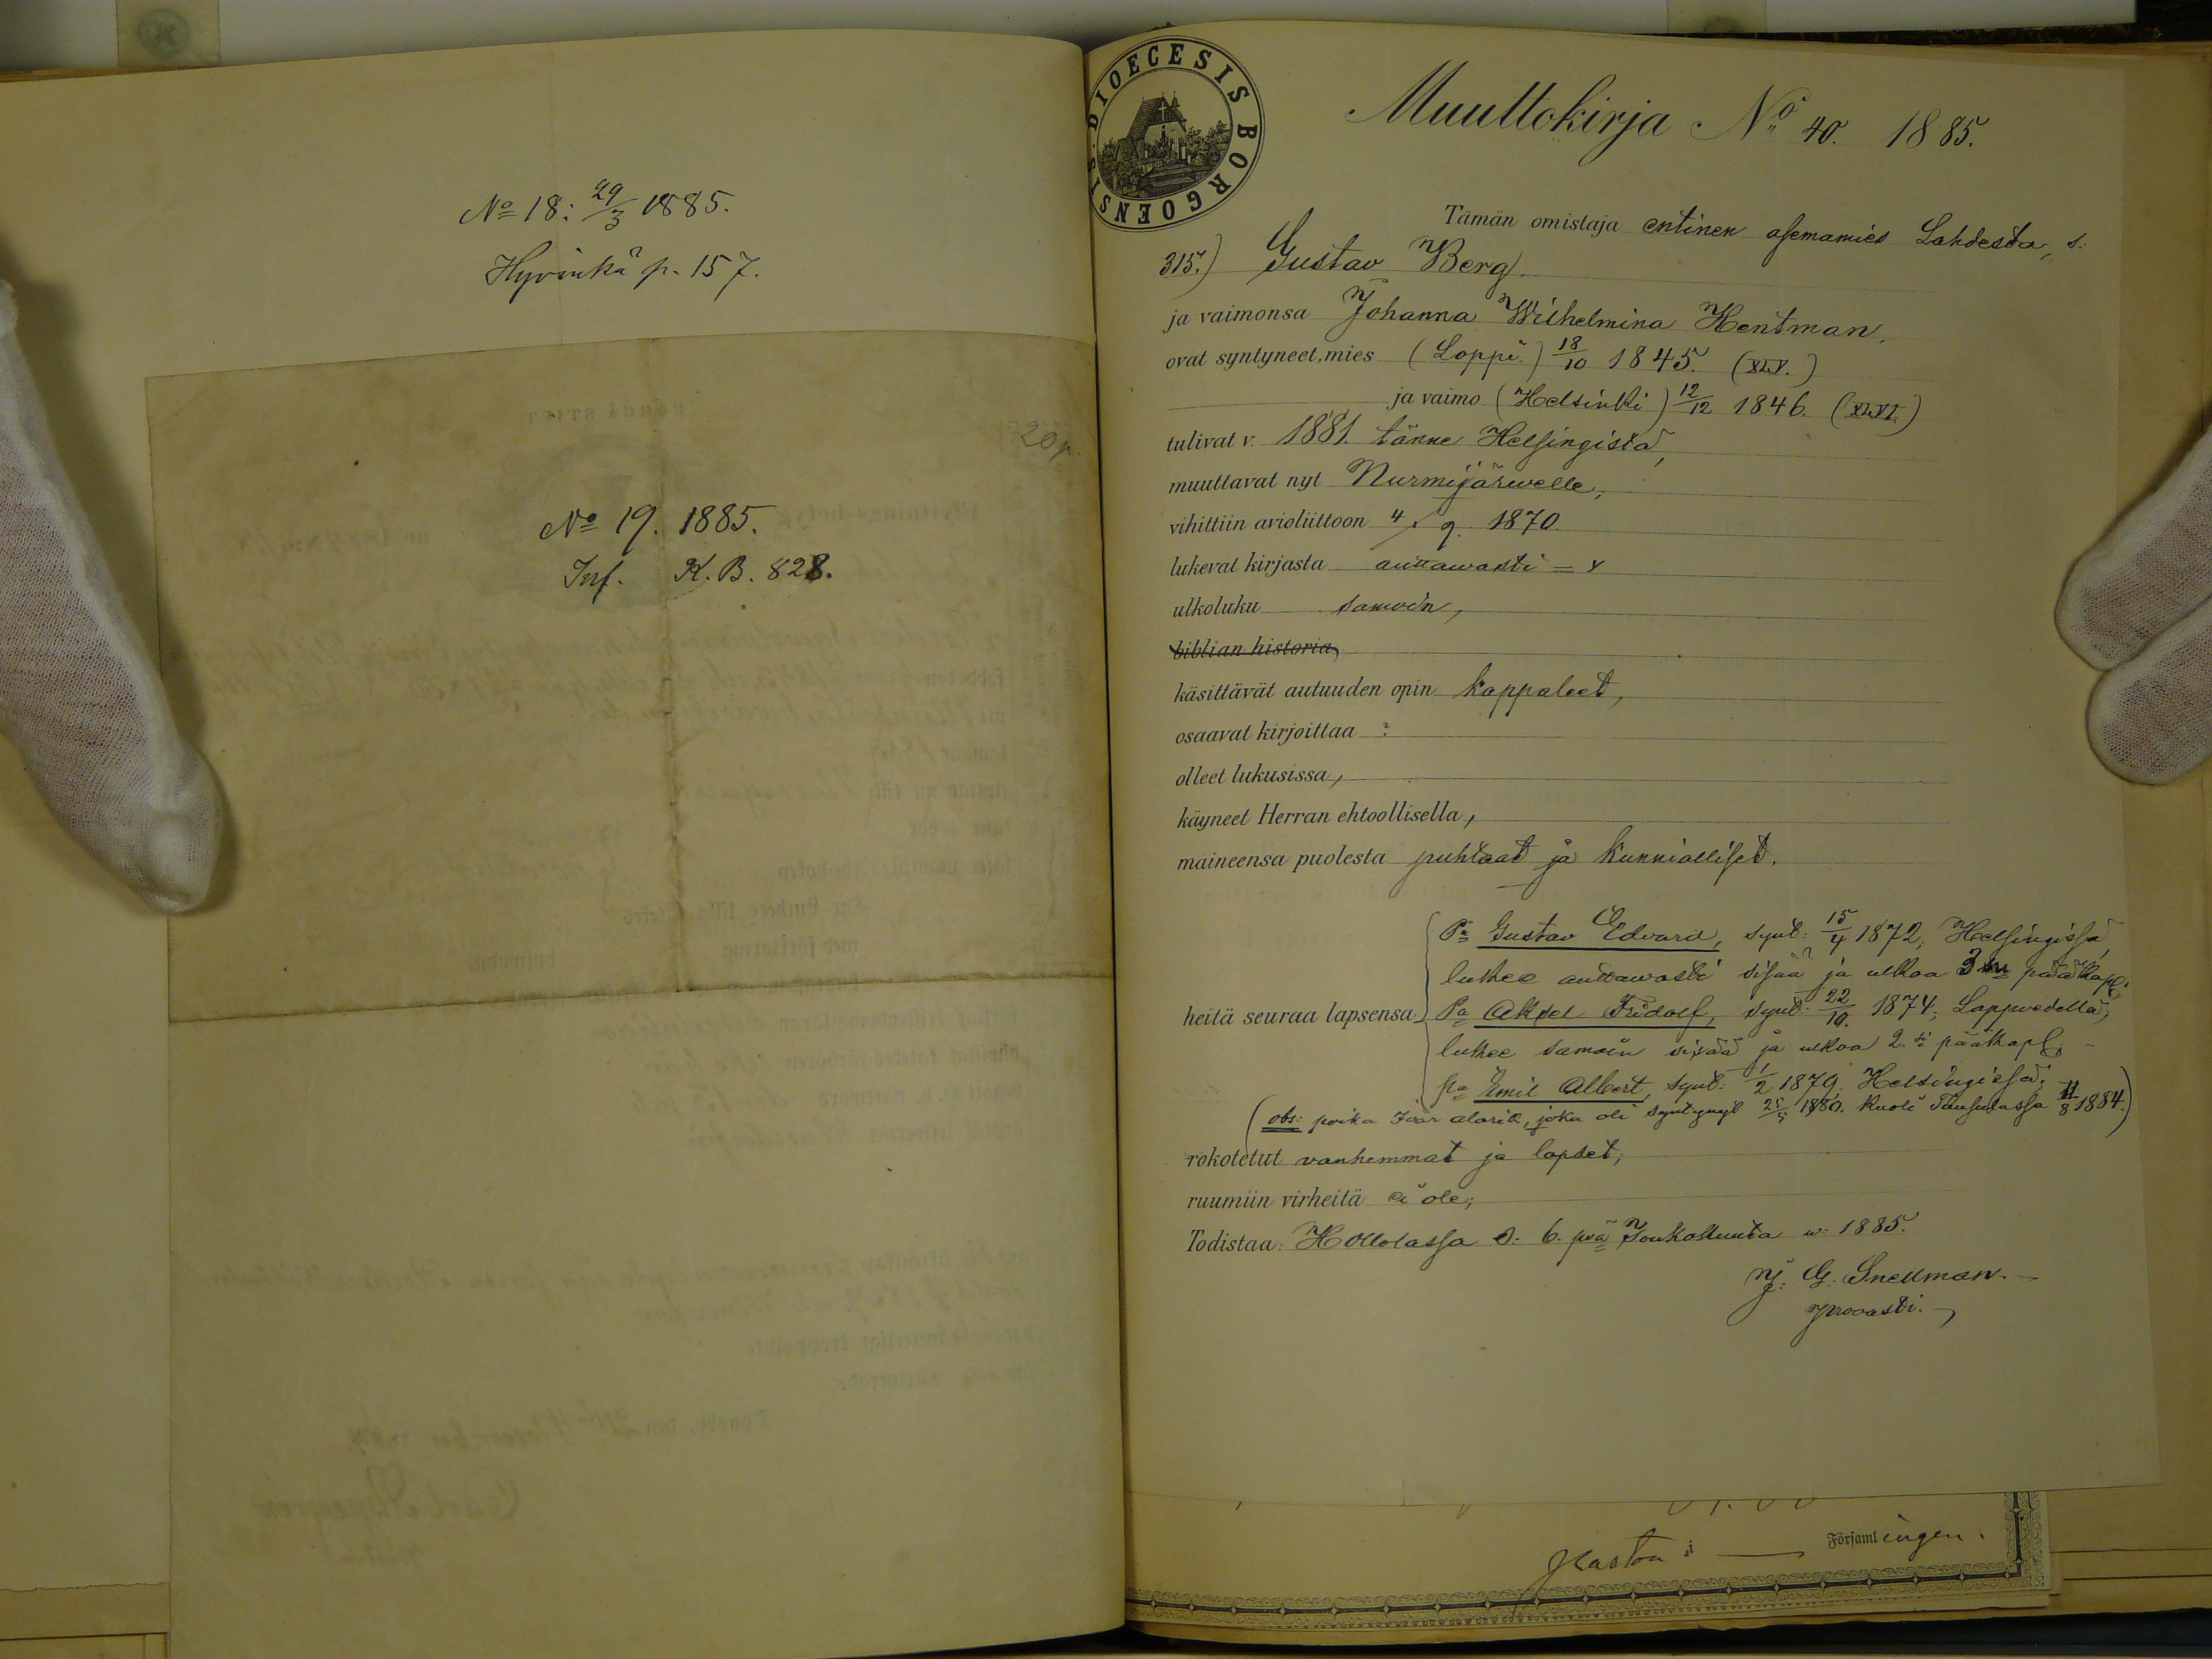 No 18: 29/3 1885.
Hyvinkä p. 157.
20 p.
No 19. 1885.
Inf. K. B. 828.
DIOECESIS BORGOENSIS
Muuttokirja No 40. 1885.
Tämän omistaja entinen asemamies Lahdesta, s:
315.) Gustav Berg.
ja vaimonsa Johanna Wilhelmina Hentman.
ovat syntyneet, mies (Loppi) 18/10 1845. (XLV.)
ja vaimo (Helsinki) 12/12 1846. (XLVI)
tulivat v. 1881. tänne Helsingistä,
muuttavat nyt Nurmijärwelle,
vihittiin avioliittoon 4/9. 1870.
lukevat kirjasta auttawasti =
ulkoluku samoin,
biblian historia,
käsittävät autuuden opin kappaleet,
osaavat kirjoittaa ?
olleet lukusissa,
käyneet Herran ehtoollisella,
maineensa puolesta puhtaat ja kunnialliset.
Pa Gustav Edvard, synt: 15/4 1872, Helsingissä,
lukee auttawasti sisää ja ulkoa 3 pääkapl;
heitä seuraa lapsensa Pa Aksel Fridolf, synt: 22/10. 1874; Lappwedellä,
lukee samoin sisää ja ulkoa 2. si pääkapl; -
pa Emil Albert, synt: 1/2 1879, Helsingissä;
(obs: poika Ivar Alarik, joka oli syntynyt 25/5 1880. kuoli Tuusulassa 11/8 1884.)
rokotetut vanhemmat ja lapset;
ruumiin virheitä ei ole;
Todistaa: Hollolassa s: 6. pnä Toukokuuta w: 1885.
J. G. Snellman.
provasti.
Församlingen.